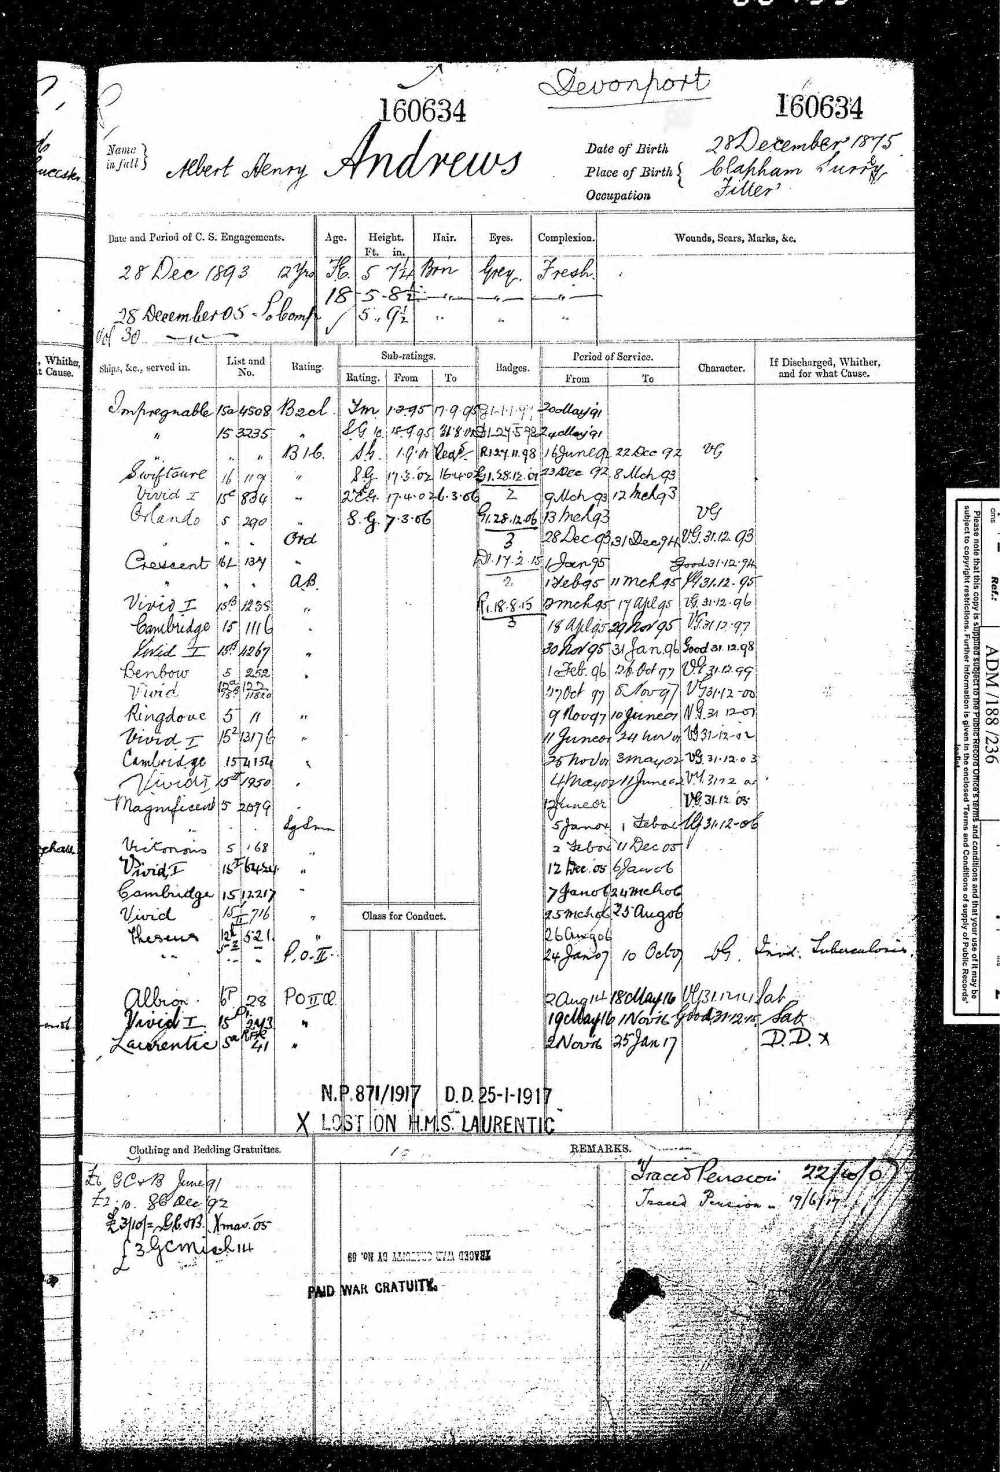 Devonport
160634
160634
Name in full } Albert Henry Andrews
Date of Birth 28 December 1875
Place of Birth { Clapham Surrey
Occupation
Date and Period of C. S. Engagements. Age. Height. Ft. in. Hair. Eyes. Complexion. Wounds, Scars, Marks, &c.
28 Dec 1893 12 Yrs 5 Brn Grey. Fresh.
18 5 8½ " " "
28 December 05 - To Comp 5 " 9½ " " "
, Whither,
t Cause.
Ships, &c., served in. List and No. Rating. Sub-ratings. Rating. From To Badges. Period of Service. From To Character. If Discharged, Whither, and for what Cause.
Impregnable 15a 4508 B2cl. 1.2.95 17.9.95 20 May '91
" 15 3235 "
" " " B 1 C. 16 June 92 22 Dec 92 VG
Swiftsure 16 119 " S.G. 17.3.02 16.4.02 23 Dec 92 8 Mch 93
Vivid I 15c 834 " 17.4.02 6.3.06 2 9 Mch 93 12 Mch 93
Orlando 5 290 " S.G. 7.3.06 G1.28.12.06 13 Mch 93 VG
" " " Ord 3 28 Dec 93 31 Dec 94 V.G. 31.12.93
Crescent 16L 137 " D1.17.2.15 1 Jan 95 Good 31.12.94
" " " A.B. 2 1 Feb 95 11 Mch 95 VG 31.12.95
Vivid I 15B 1235 " R1.18.8.15 17 Apl 95 VG. 31.12.96
Cambridge 15 1116 " 3 18 Apl 95 29 Nov 95 VG 31.12.97
Vivid I 15B 4267 " 30 Nov 95 31 Jan 96 Good 31.12.98
Benbow 5 252 " 1 Feb. 96 26 Oct 97 VG 31.12.99
Vivid 27 Oct 97 8 Nov 97 VG 31.12.00
Ringdove 5 11 " 9 Nov 97 10 June 01 V.G. 31.12.01
Vivid I 15 13176 " 11 June 01 24 Nov 01 VG 31.12.02
Cambridge 15 4154 " 25 Nov 01 3 May 02 VG. 31.12.03
Vivid I 15 1950 " 4 May 02 11 June 02
Magnificent 5 2099 " 12 June 02 VG. 31.12.05
" " " Lg Smn 5 Jan 04 1 Feb 04 VG 31.12.06
Victorious 5 168 " 2 Feb 04 11 Dec 05
Vivid I 15 6424 " 12 Dec. 05 6 Jan 06
Cambridge 15 12217 7 Jan 06 24 Mch 06
Vivid 716 " 25 Mch 06 25 Aug 06
Class for Conduct.
Theseus 521. " 26 Aug 06
" " P.O. II. 24 Jan 07 10 Oct 07 VG. Invd. Tuberculosis.
Albion 28 PO II 2 Aug 14 18 May 16 VG 31.12.14
Vivid I 15 243 " 19 May 16 1 Nov 16 Good 31.12.15
Laurentic 5a 41 " 2 Nov 16 25 Jan 17 D.D. X
N.P. 871/1917 D.D. 25-1-1917
X LOST ON H.M.S. LAURENTIC
Clothing and Bedding Gratuities. REMARKS.
June 91
£2.10. Dec 92
£3/10/= G.C.&B. Xmas. '05
£3 G.C. Mich 14
Traced Pension 22/10/07
Traced Pension 19/6/17
TRACED WAR GRATUITY BY NO. 69
PAID WAR GRATUITY.
Ref.: ADM/188/236
Please note that this copy is supplied subject to the Public Record Office's terms and conditions and that your use of it may be
subject to copyright restrictions. Further information is given in the enclosed 'Terms and Conditions of supply of Public Records'
leaflet